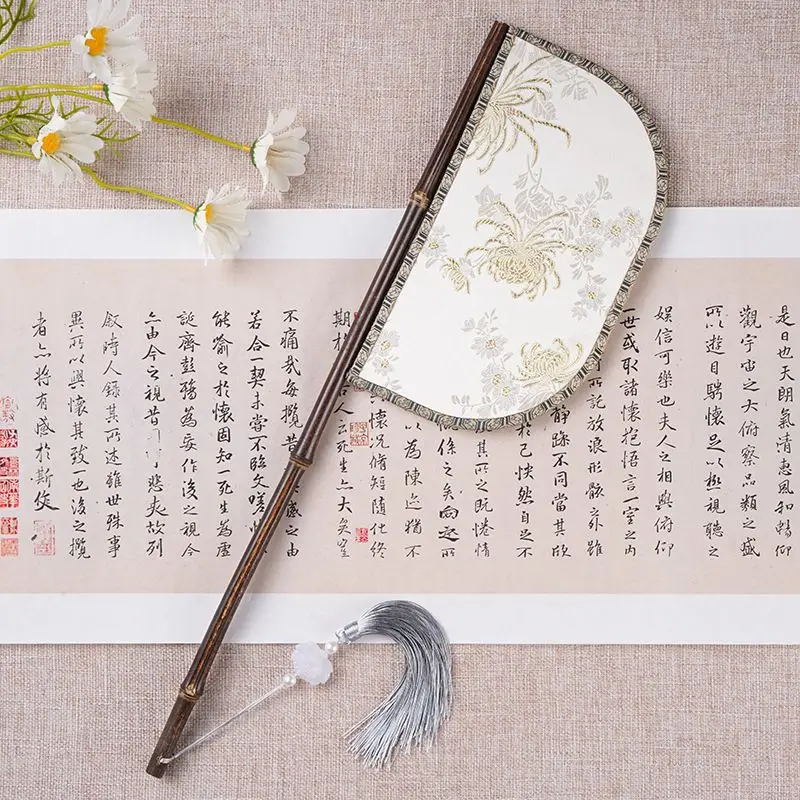 是日也天朗氣清惠風和暢仰
觀宇宙之大俯察品類之盛
所以遊目騁懷足以極視聽之
娛信可樂也夫人之相與俯仰
一世或取諸懷抱悟言一室之內
所託放浪形骸之外雖
靜躁不同當其欣
於己怏然自足不
其所之既惓情
係之矣向之所
為陳迹猶不
懷況脩短隨化終
期於古人云死生亦大矣豈
不痛哉每攬昔感之由
若合一契未嘗不臨文嗟
能喻之於懷固知一死生為虛
誕齊彭殤為妄作後之視今
亦由今之視昔悲夫故列
敘時人錄其所述雖世殊事
異所以興懷其致一也後之攬
者亦將有感於斯文